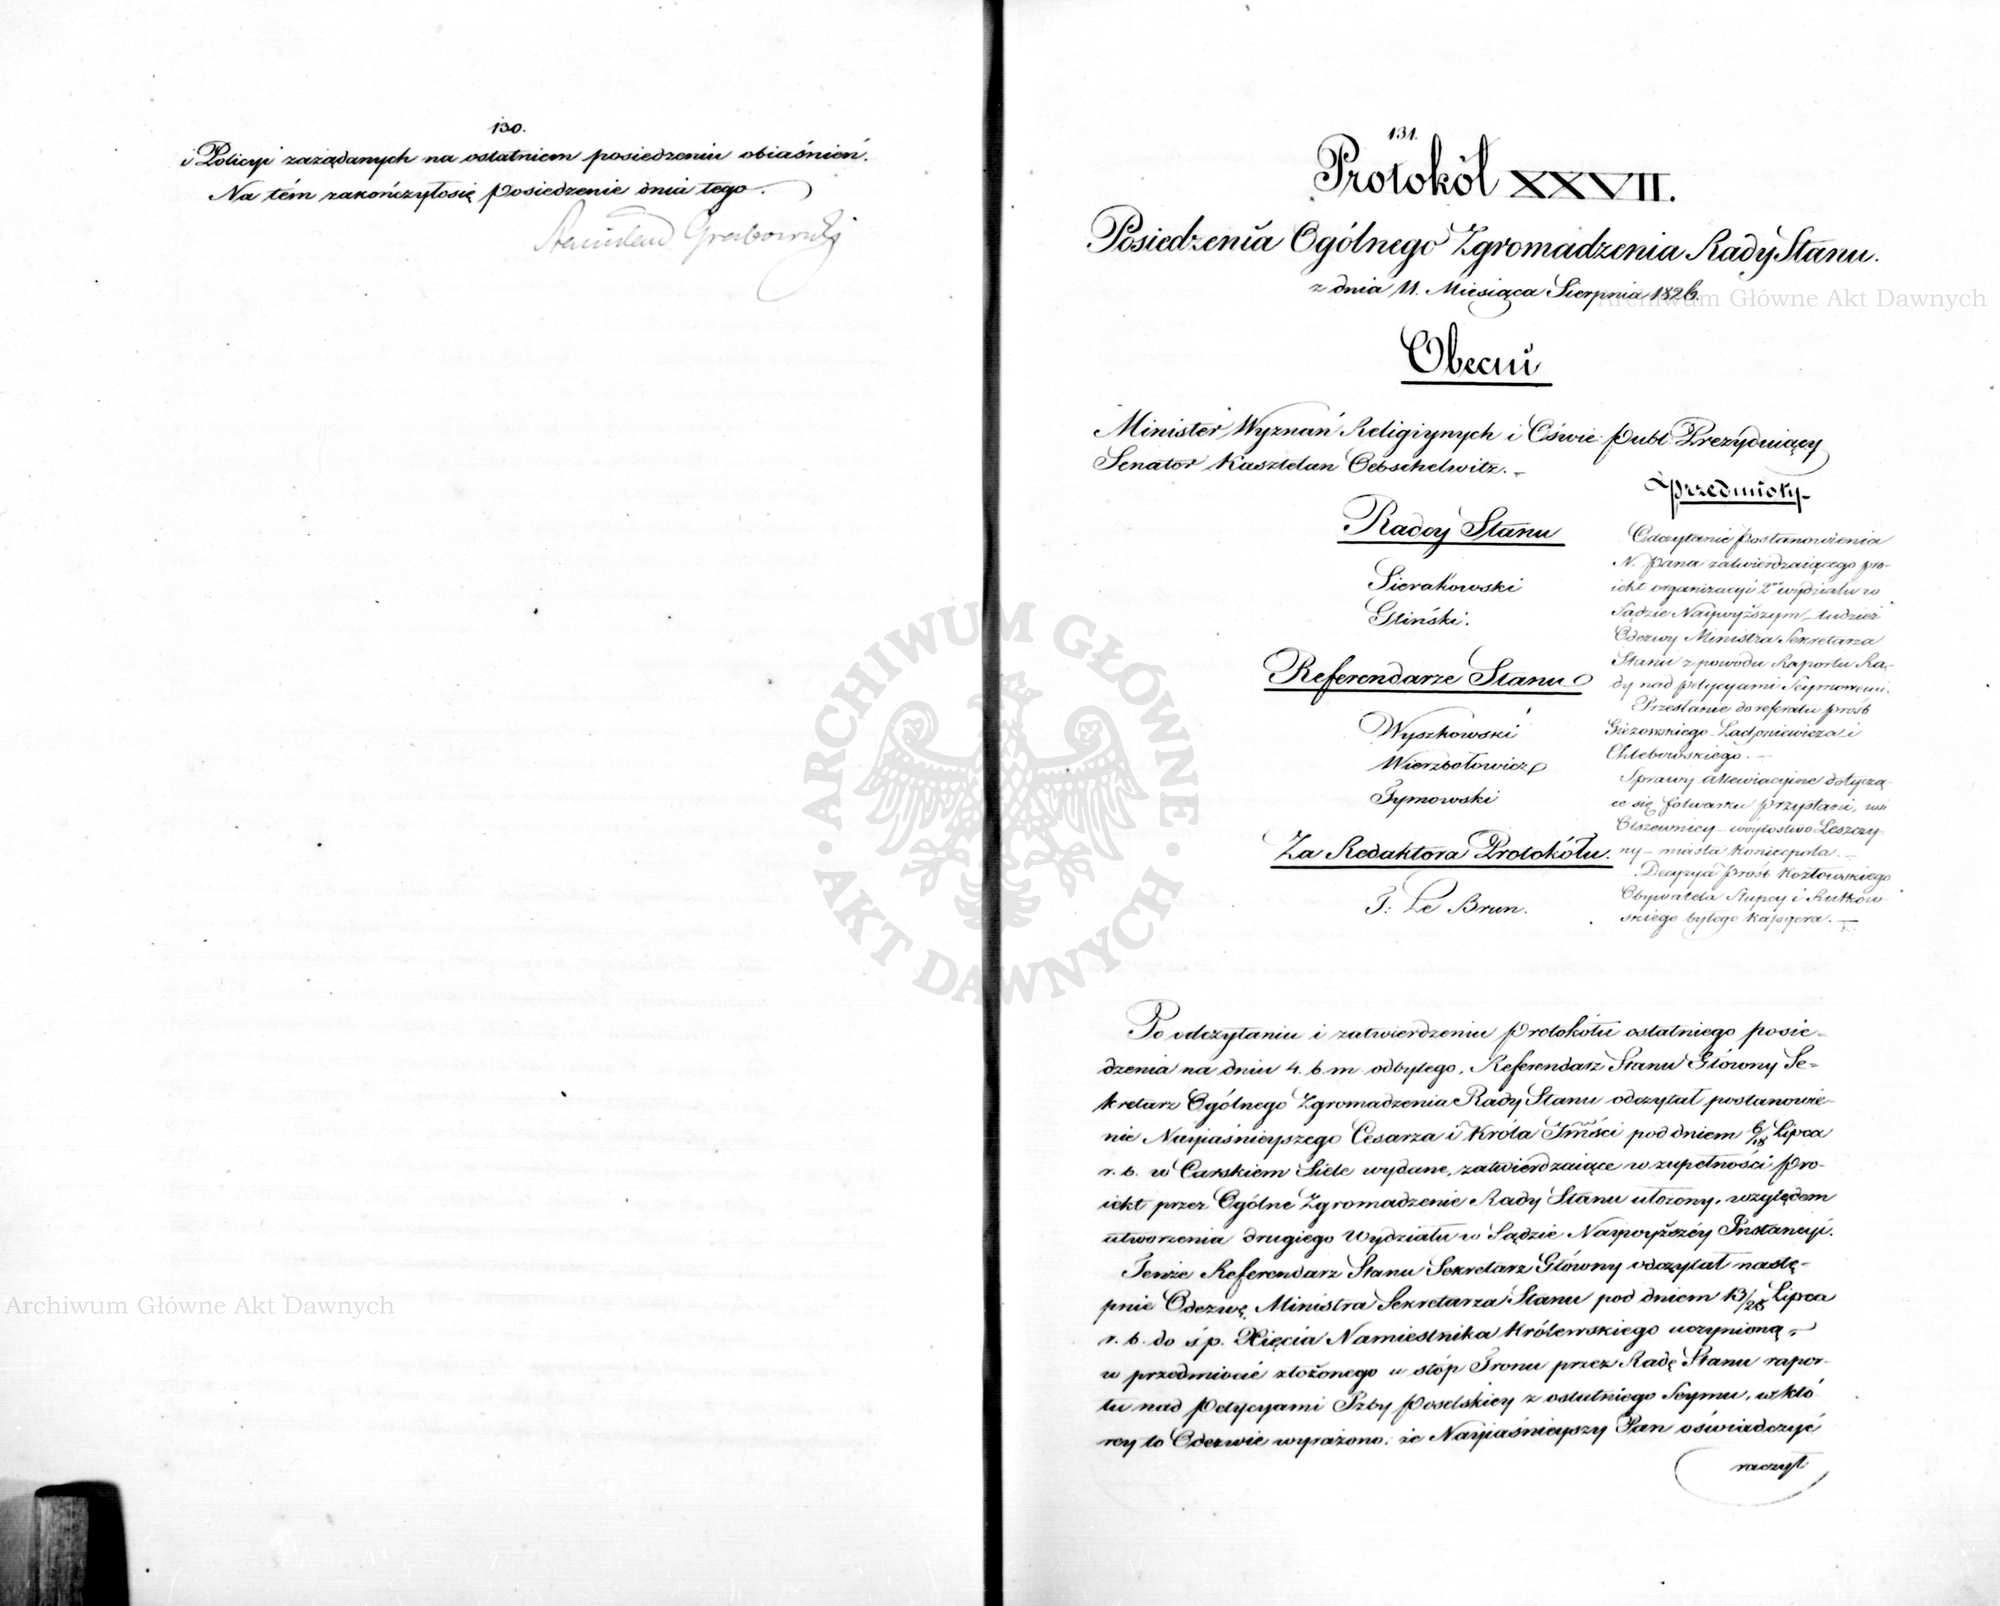 130.
i Policyi zażądanych na ostatniem posiedzeniu obiaśnień.
Na tém zakończyłosię posiedzenie dnia tego.
Stanisław Grabowski
131.
Protokół XXVII.
Posiedzenia Ogólnego Zgromadzenia Rady Stanu.
z dnia 11. Miesiąca Sierpnia 1826.
Obecni
Minister Wyznań Religiynych i Oświe: publ: Prezyduiący
Senator Kasztelan Oebschelwitz.
Radcy Stanu
Sierakowski
Gliński.
Referendarze Stanu
Wyszkowski
Wierzbołowicz
Tymowski
Za Redaktora Protokółu.
J: Le Brun.
Przedmioty
Odczytanie postanowienia
N. Pana zatwierdzaiącego pro-
iekt organizacyi 2go wydziału w
Sądzie Naywyższym, tudzież
Odezwy Ministra Sekretarza
Stanu z powodu Raportu Ra-
dy nad petycyami Seymowemi.
Przesłanie do referatu próśb
Giżowskiego Ladoniewicza i
Chlebowskiego.
Sprawy allewiacyine dotyczą-
ce się folwarku Przystani, wsi
Olszewnicy woytostwo Leszczy-
ny - miasta Koniecpola.
Decyzya próśb Kozłowskiego
Obywatela Słupcy i Rutkow-
skiego byłego kassyera.
Po odczytaniu i zatwierdzeniu protokółu ostatniego posie-
dzenia na dniu 4. b. m. odbytego, Referendarz Stanu Główny Se-
kretarz Ogólnego Zgromadzenia Rady Stanu odczytał postanowie-
nie Nayiaśnieyszego Cesarza i Króla Jmści pod dniem 6/18 Lipca
r. b. w Carskiem Siele wydane, zatwierdzaiące w zupełności pro-
iekt przez Ogólne Zgromadzenie Rady Stanu ułożony, względem
utworzenia drugiego Wydziału w Sądzie Naywyższéy Instancyi.
Tenże Referendarz Stanu Sekretarz Główny odczytał nastę-
pnie Odezwę Ministra Sekretarza Stanu pod dniem 13/25 Lipca
r. b. do ś. p. Xięcia Namiestnika Królewskiego uczynioną,
w przedmiocie złożonego u stóp Tronu przez Radę Stanu rapor-
tu nad petycyami Izby poselskiey z ostatniego Seymu, w któ
rey to Odezwie wyrażono: że Nayiaśnieyszy Pan oświadczyć
raczył
Archiwum Główne Akt Dawnych
Archiwum Główne Akt Dawnych
ARCHIWUM GŁÓWNE
AKT DAWNYCH